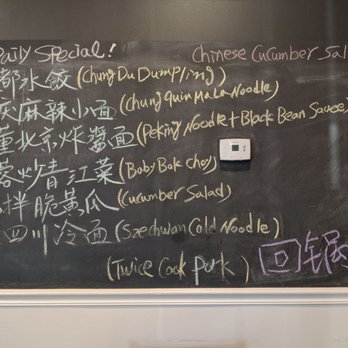 Daily Special! Chinese Cucumber Sal
都水餃 (Chung Du Dumpling)
麻辣小面 (Chung quin MaLa Noodle)
北京炸醬面 (Peking Noodle + Black Bean Sauce)
蓉炒青江菜 (Baby Bok Choy)
拌脆黃瓜 (Cucumber Salad)
四川冷面 (Szechwan Cold Noodle)
(Twice Cook Pork) 回锅